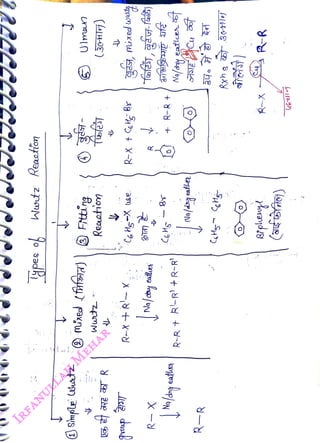 Types of Wurtz Reaction
① Simple Wurtz
एक ही तरह का R
group होगा
R-X
↓ Na/dry eather
R-R
② Mixed (मिश्रित)
Wurtz-
R-X + R'-X
↓ Na/dry eather
R-R + R'-R' + R-R'
③ Fitting
Reaction
C6H5-X use
होता है
C6H5-Br
↓ Na/dry eather
C6H5-C6H5
Biphenyl
④ वुर्ट्ज-
फिटिंग
R-X + C6H5-Br
↓
R + R-R +
⑤ Ulman
(उल्मान)
↓
वुर्ट्ज, mixed wurtz
फिटिंग, वुर्ट्ज-फिटिंग
अभिक्रियाएं यदि
Na/dry eather की
जगह Cu की
उप० में हो इन
Rxns को उल्मान
बोलेंगे।
R-X Cu R-R
उल्मान
IRFANULLAH MEHAR